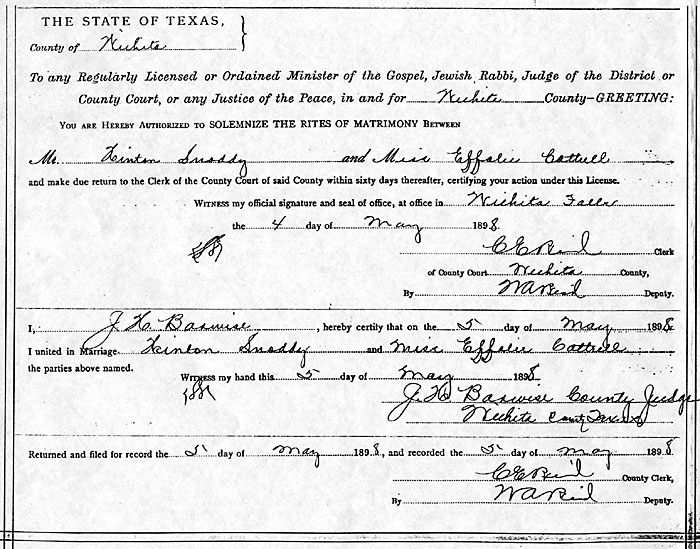 THE STATE OF TEXAS,
County of Wichita
To any Regularly Licensed or Ordained Minister of the Gospel, Jewish Rabbi, Judge of the District or
County Court, or any Justice of the Peace, in and for Wichita County—GREETING:
YOU ARE HEREBY AUTHORIZED TO SOLEMNIZE THE RITES OF MATRIMONY BETWEEN
Mr. Hinton Snoddy and Miss Effalee Cottrell
and make due return to the Clerk of the County Court of said County within sixty days thereafter, certifying your action under this License.
WITNESS my official signature and seal of office, at office in Wichita Falls
the 4 day of May 1898.
C E Reid Clerk
of County Court Wichita County,
By W A Reid Deputy.
I, J. H. Barwise, hereby certify that on the 5 day of May 1898
I united in Marriage Hinton Snoddy and Miss Effalee Cottrell
the parties above named.
WITNESS my hand this 5 day of May 1898
J. H. Barwise County Judge
Wichita County Texas
Returned and filed for record the 5 day of May 1898, and recorded the 5 day of May 1898
C E Reid County Clerk,
By W A Reid Deputy.